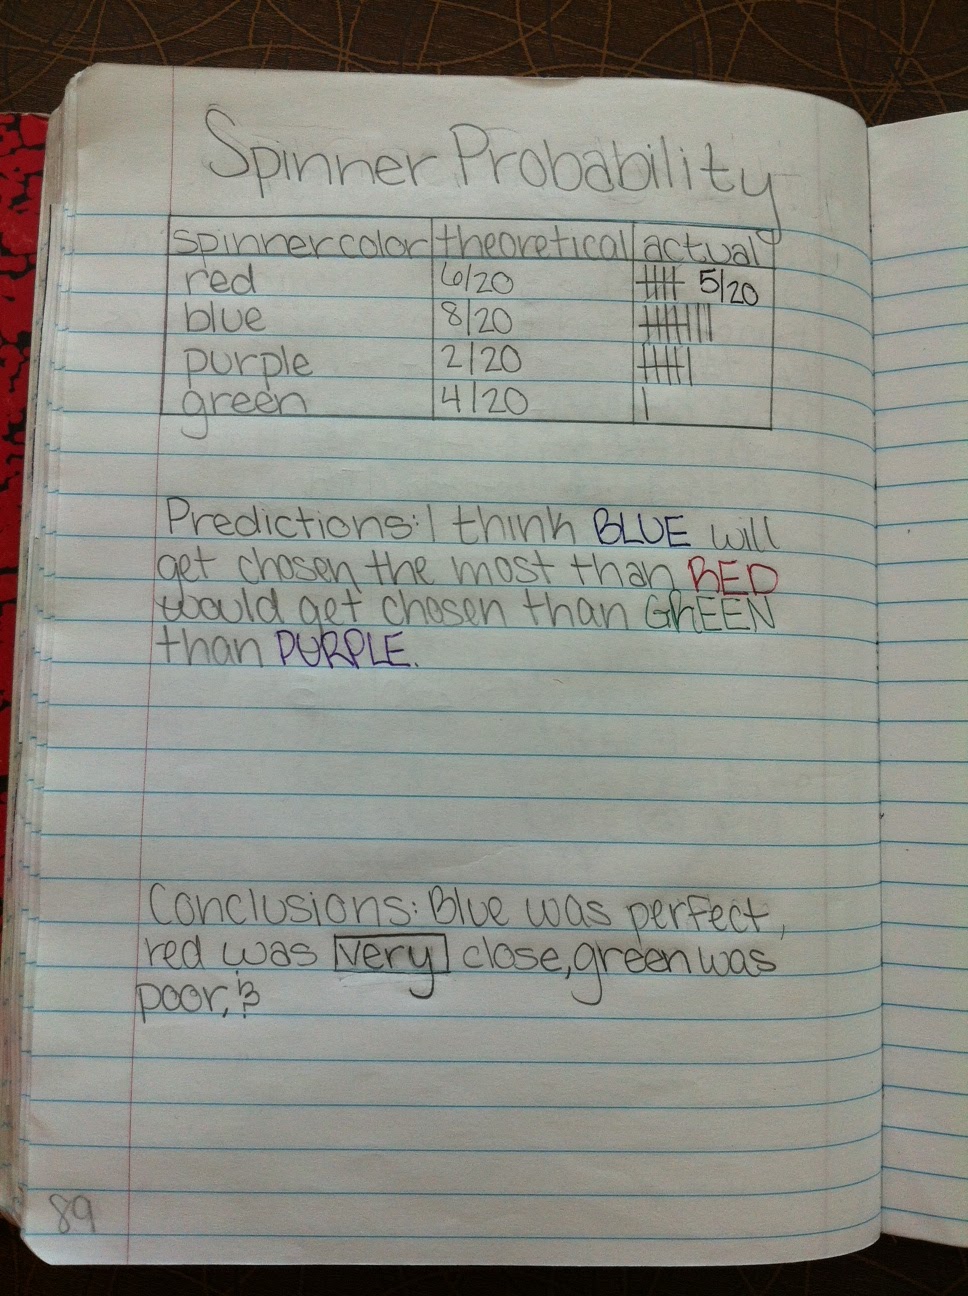 Spinner Probability
spinner color theoretical actual
red 6/20 5/20
blue 8/20
purple 2/20
green 4/20
Predictions: I think BLUE will
get chosen the most than RED
would get chosen than GREEN
than PURPLE.
Conclusions: Blue was perfect,
red was very close, green was
poor,
89